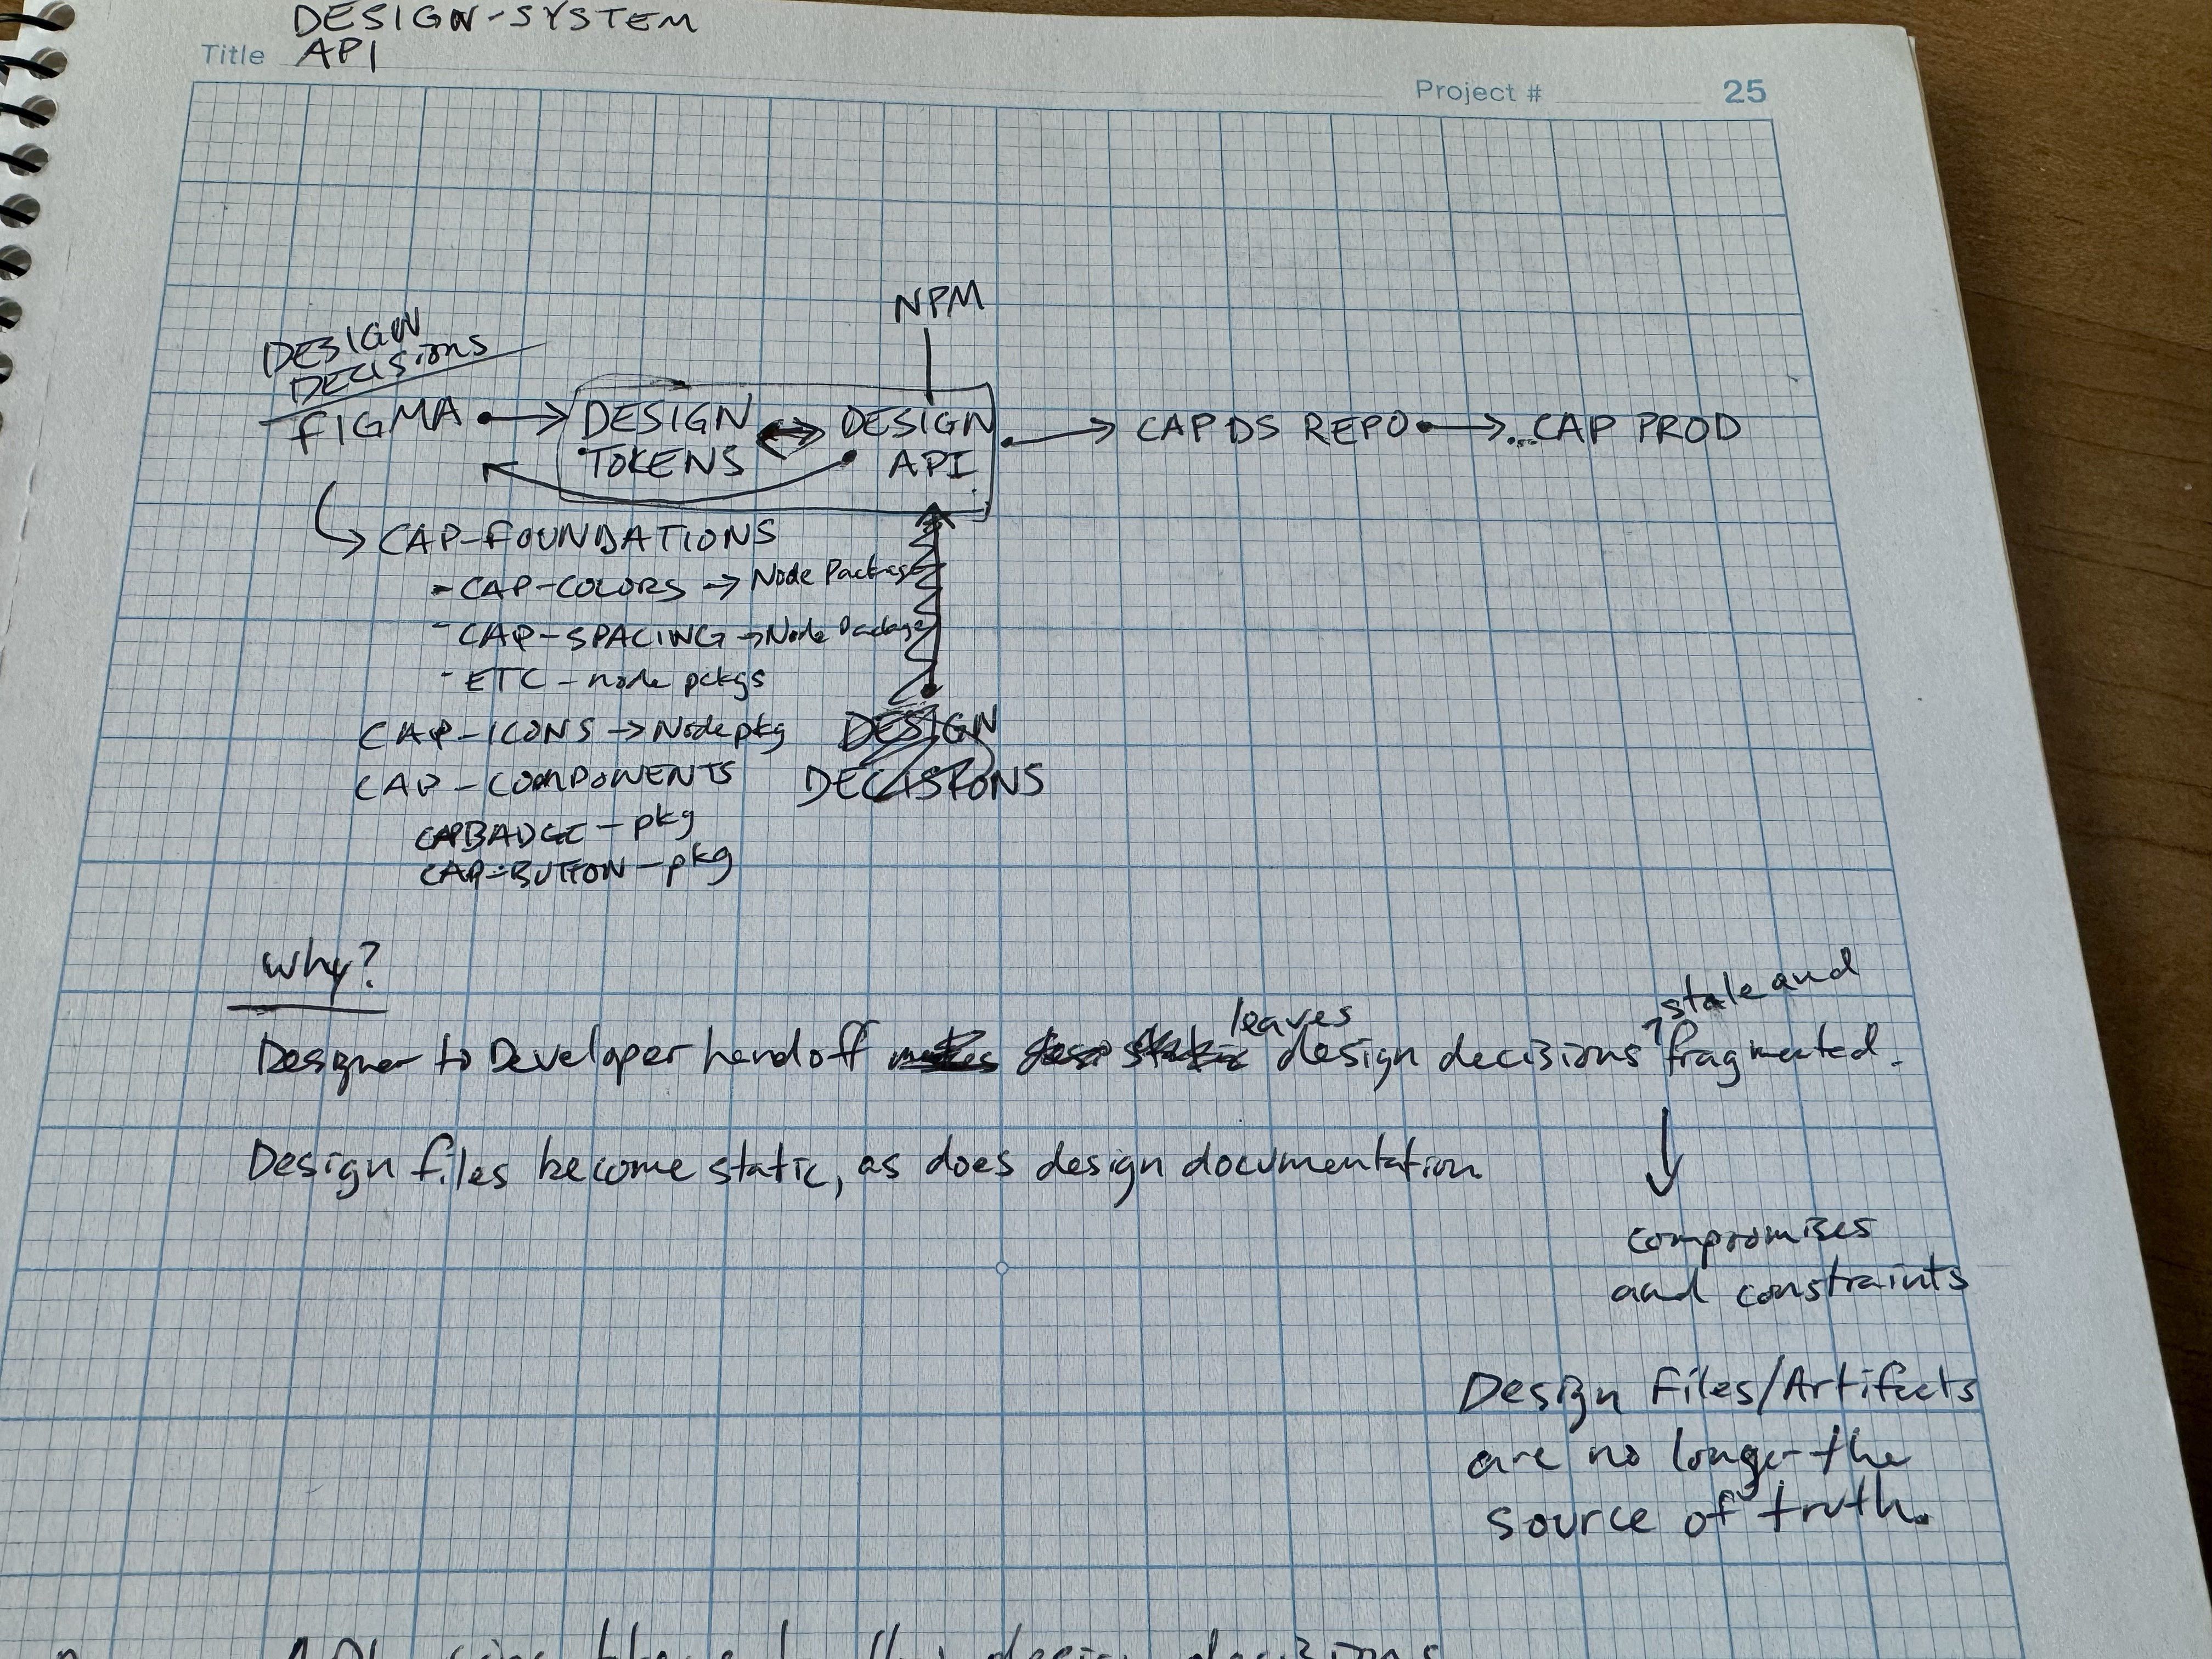 DESIGN-SYSTEM
Title API
Project # 25
NPM
DESIGN
DECISIONS
FIGMA
DESIGN
TOKENS
DESIGN
API
CAP DS REPO
...CAP PROD
CAP-FOUNDATIONS
- CAP-COLORS → Node Package
- CAP-SPACING → Node Package
- ETC - node pckgs
CAP-ICONS → Node pkg
CAP-COMPONENTS
CAPBADGE - pkg
CAP-BUTTON - pkg
DESIGN
DECISIONS
Why?
Designer to Developer handoff leaves design decisions stale and fragmented.
Design files become static, as does design documentation
compromises
and constraints
Design Files/Artifacts
are no longer the
source of truth.
design decisions